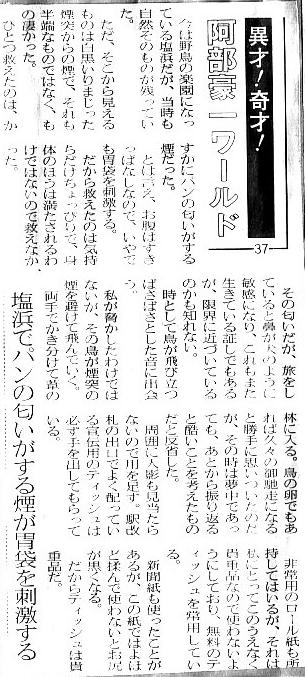 異才！奇才！
阿部豪一ワールド
37
今は野鳥の楽園になっ
ている塩浜だが、当時も
自然そのものが残ってい
た。
ただ、そこから見える
ものは白黒いりまじった
煙突からの煙で、それも
半端なものではなく、も
の凄かった。
ひとつ救えたのは、か
すかにパンの匂いがする
煙だった。
とは言え、お腹はすき
っぱなしなので、いやで
も胃袋を刺激する。
だから救えたのは気持
ちだけちょっぴりで、身
体のほうは満たされるわ
けではないので救えなか
った。
その匂いだが、旅をし
ていると鼻が犬のように
敏感になり、これもまた
生きている証しでもある
が、限界に近づいている
のかも知れない。
時として鳥が飛び立つ
ばさばさとした音に出会
う。
私が脅かしたわけでは
ないが、その鳥が煙突の
煙を避けて飛んでいく。
両手でかき分けて葦の
体に入る。鳥の卵でもあ
れば久々の御馳走になる
と勝手に思いついたのだ
が、その時は夢中であっ
ても、あとから振り返る
と酷いことを考えたもの
だと反省した。
周囲に人影も見当たら
ないので用を足す。駅改
札の出口でよく配ってい
る宣伝用のティッシュは
必ず手を出してもらって
いる。
非常用のロール紙も所
持してはいるが、それは
私にとってこのうえなく
貴重品なので使わないよ
うにしており、無料のテ
ィッシュを常用してい
る。
新聞紙も使ったことが
あるが、この紙ではよほ
ど揉んで使わないとお尻
が黒くなる。
だからティッシュは貴
重品だ。
塩浜でパンの匂いがする煙が胃袋を刺激する